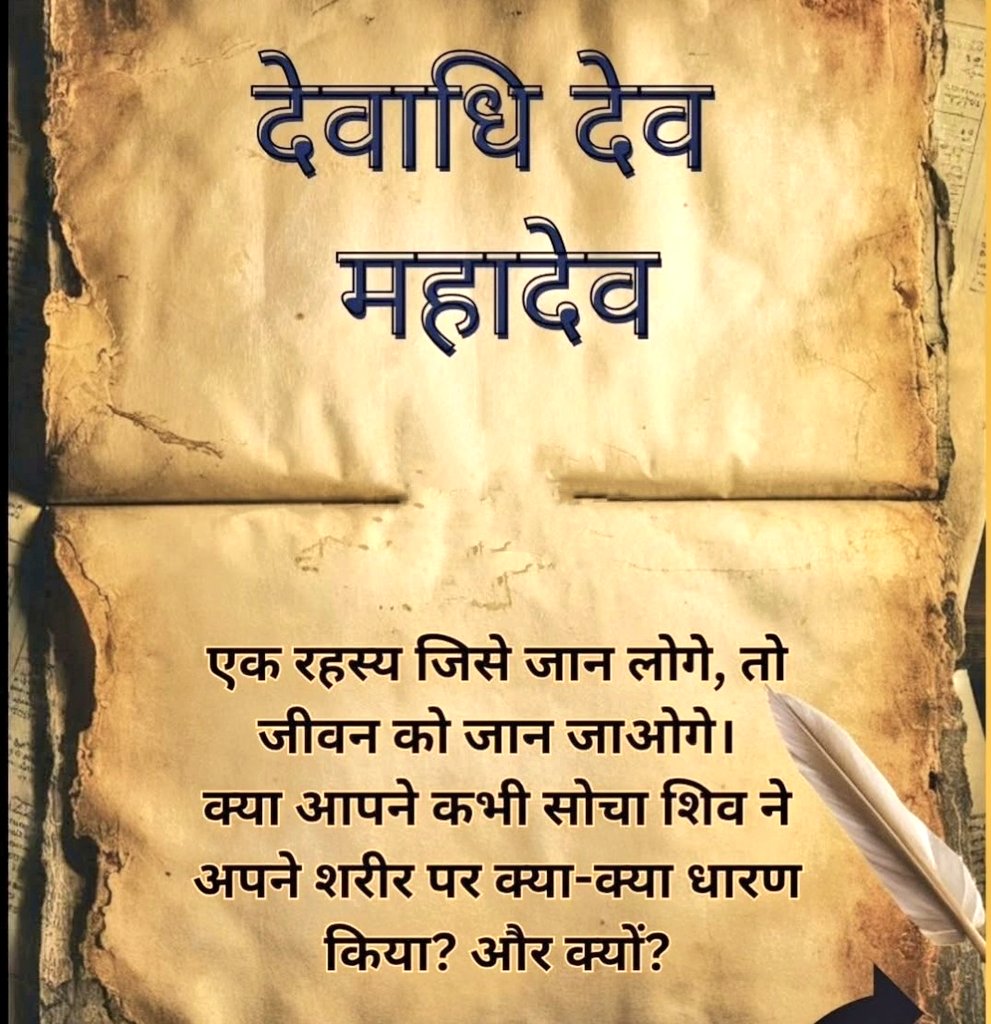 देवाधि देव
महादेव
एक रहस्य जिसे जान लोगे, तो
जीवन को जान जाओगे।
क्या आपने कभी सोचा शिव ने
अपने शरीर पर क्या-क्या धारण
किया? और क्यों?